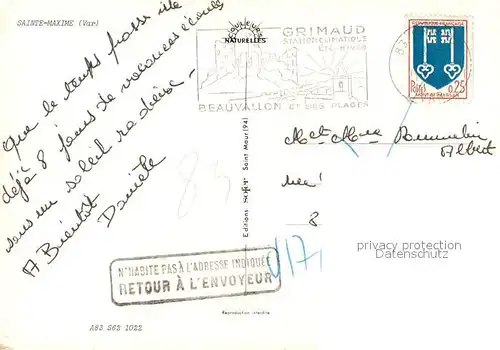 SAINTE-MAXIME (Var)
Que le temps passe vite
déjà 8 jours de vacances écoulés
sous un soleil radieux
A Bientôt
Danièle
COULEURS
NATURELLES
GRIMAUD
STATION CLIMATIQUE
ÉTÉ-HIVER
BEAUVALLON ET SES PLAGES
83
REPUBLIQUE FRANÇAISE
POSTES
0,25
MONT-DE-MARSAN
Albert
8
83
V17
Editions Saint Maur (94)
N'HABITE PAS À L'ADRESSE INDIQUÉE
RETOUR À L'ENVOYEUR
Reproduction interdite
A83 S62 1022
privacy protection
Datenschutz